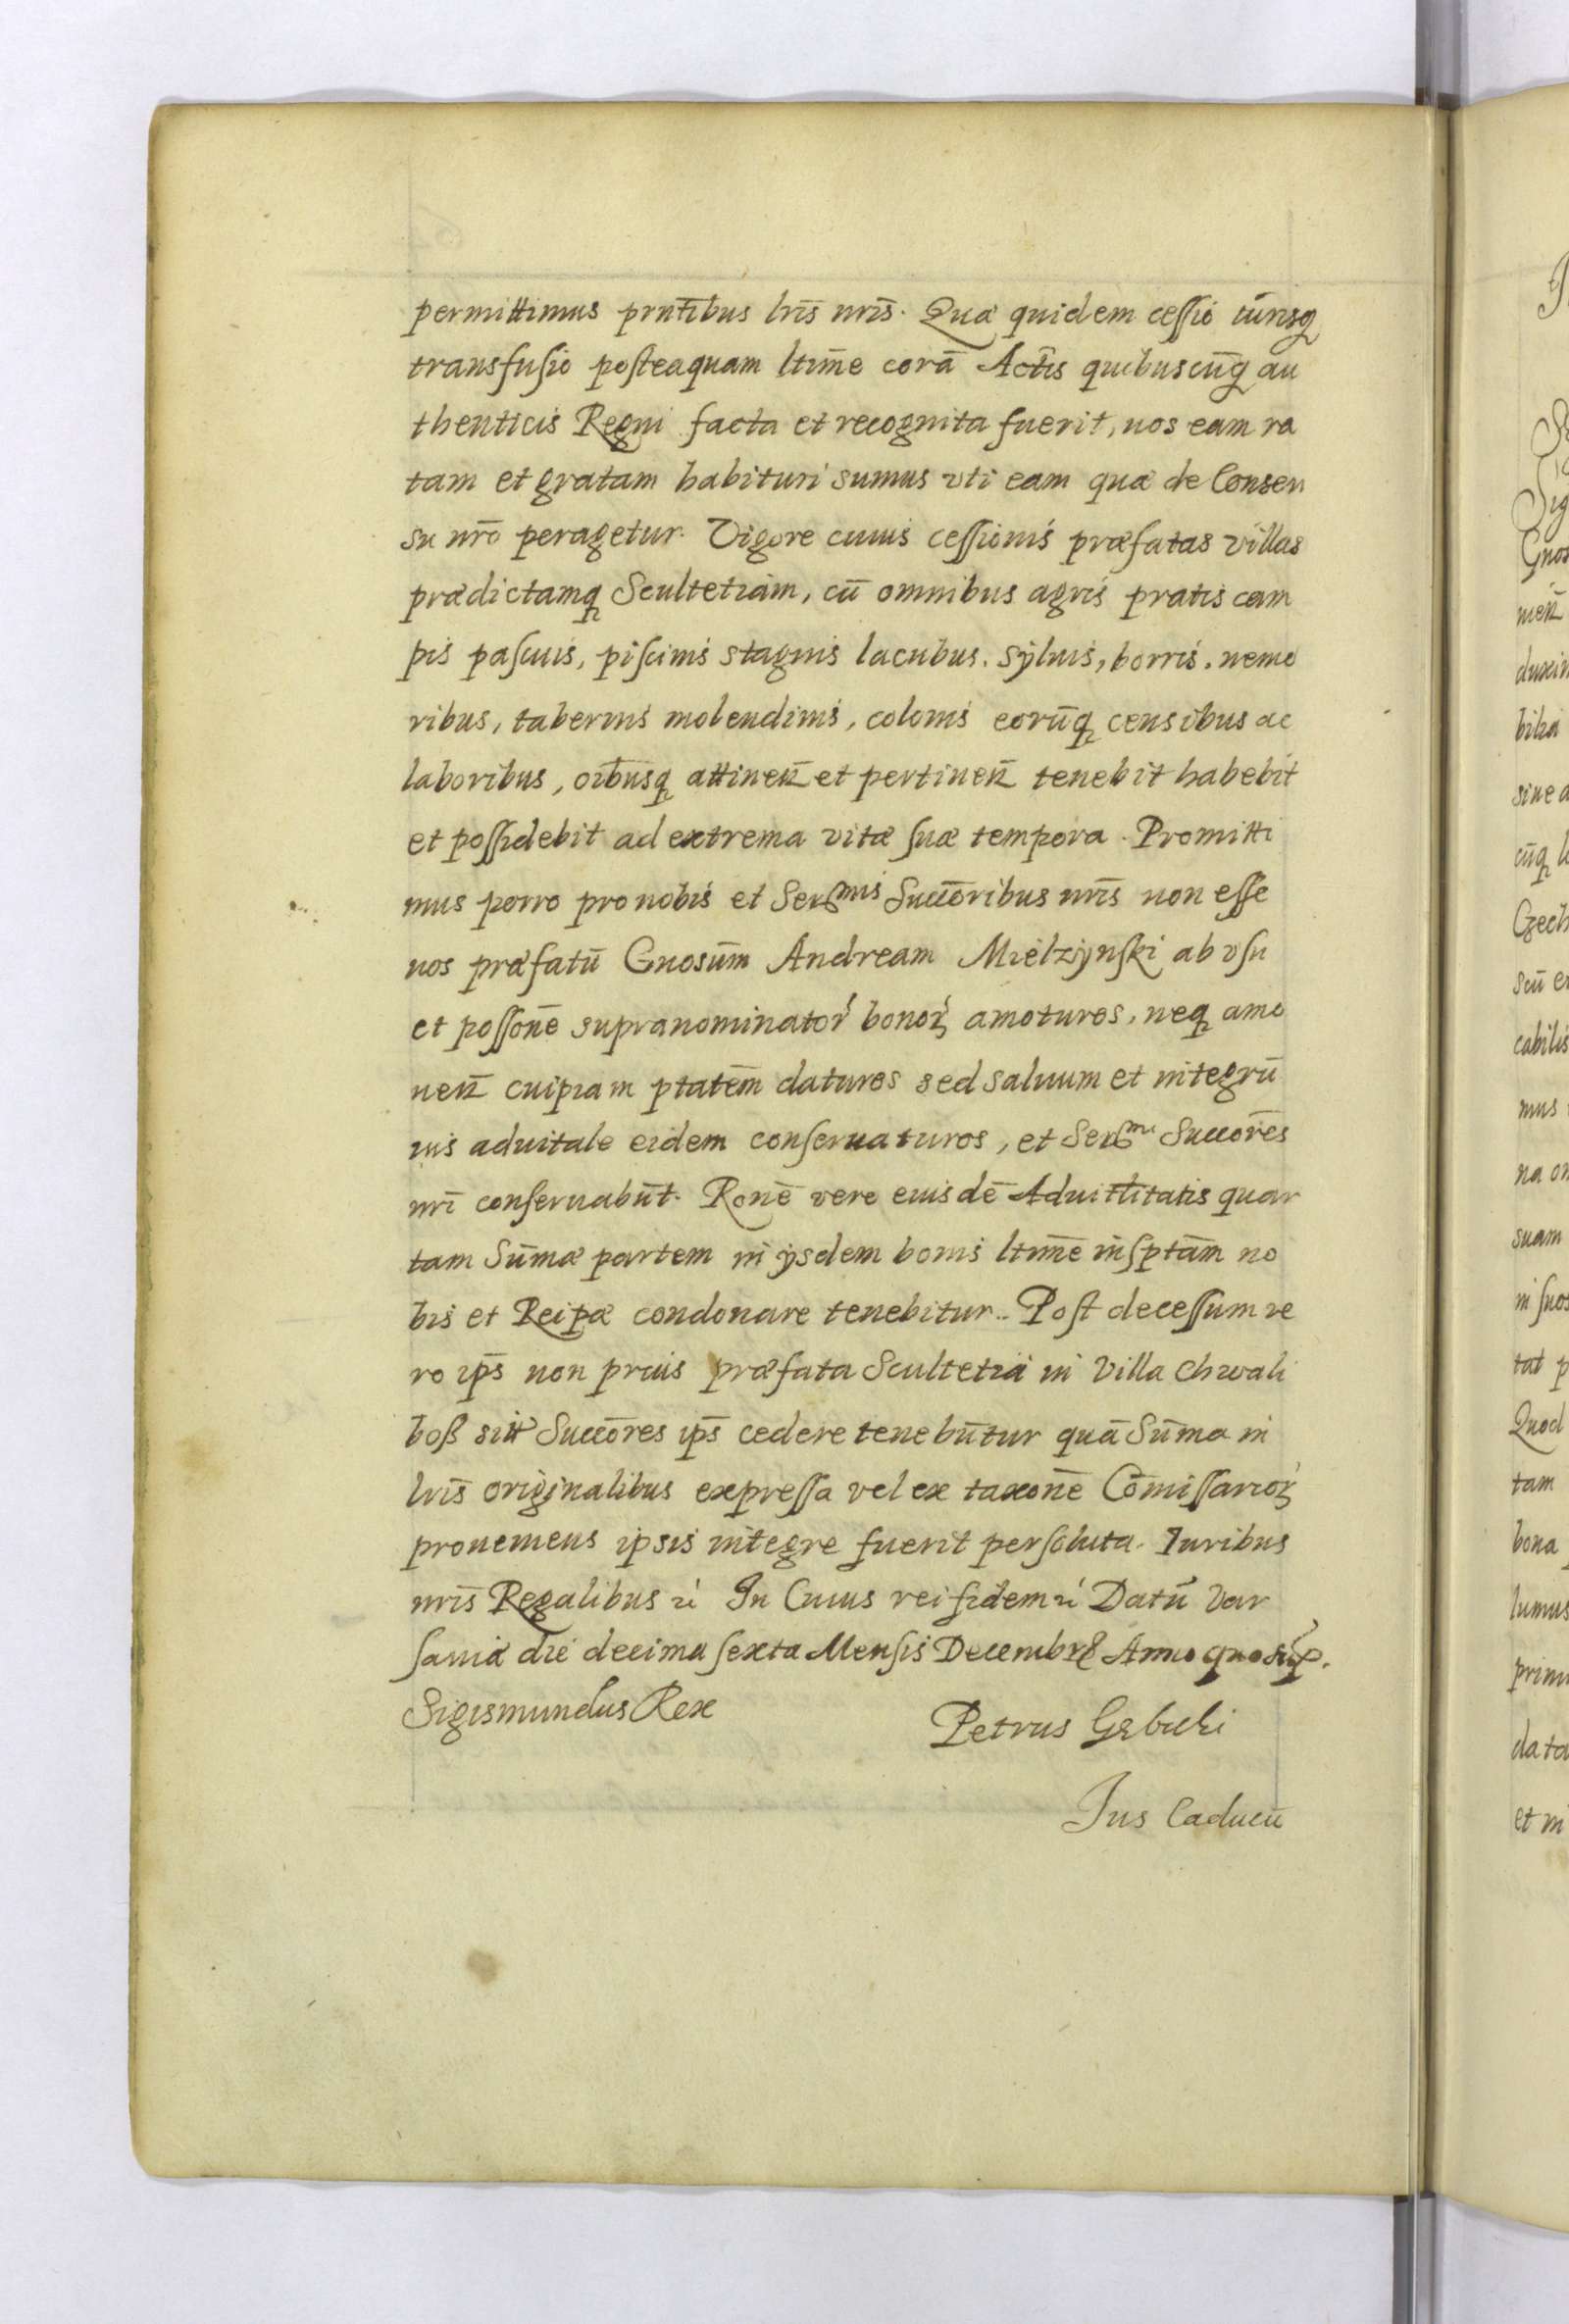 permittimus prntibus lris nris. Quæ quidem cessio iurisq
transfusio posteaquam ltime corā Actis quibuscūq au
thenticis Regni facta et recognita fuerit, nos eam ra
tam et gratam habituri sumus vti eam quæ de Consen
su nro peragetur. Vigore cuius cessionis præfatas villas
prædictamq Scultetiam, cū omnibus agris pratis cam
pis pascuis, piscinis stagnis lacubus. sÿluis, borris. nemo
ribus, tabernis molendinis, colonis eorūq censibus ac
laboribus, oibusq attinen et pertinen tenebit habebit
et possidebit ad extrema vitæ suæ tempora. Promitti
mus porro pro nobis et Sermis Succoribus nris non esse
nos præfatū Gnosum Andream Mielzÿnski ab vsu
et possone supranominator bonor amoturos, neq amo
uen cuipiam ptatem daturos sed saluum et integrū
ius aduitale eidem conseruaturos, et Sermi Succores
nri conseruabūt. Rone vero euisdē Aduitlitatis quar
tam Sūmæ partem in ÿsdem bonis ltime insptam no
bis et Reipæ condonare tenebitur.. Post decessum ve
ro ips non prius præfata Scultetia in Villa Chwali
boß sitt Succores ips cedere tenebūtur quā Sūma in
lris originalibus expressa vel ex taxone Cōmissarior
proueniens ipsis integre fuerit persoluta. Iuribus
nris Regalibus ꝛ In Cuius rei fidem ꝛ Datū Var
sauiæ die decima sexta Mensis Decembr Anno quo sup.
Sigismundus Rex
Petrus Gębicki
Ius Caducū